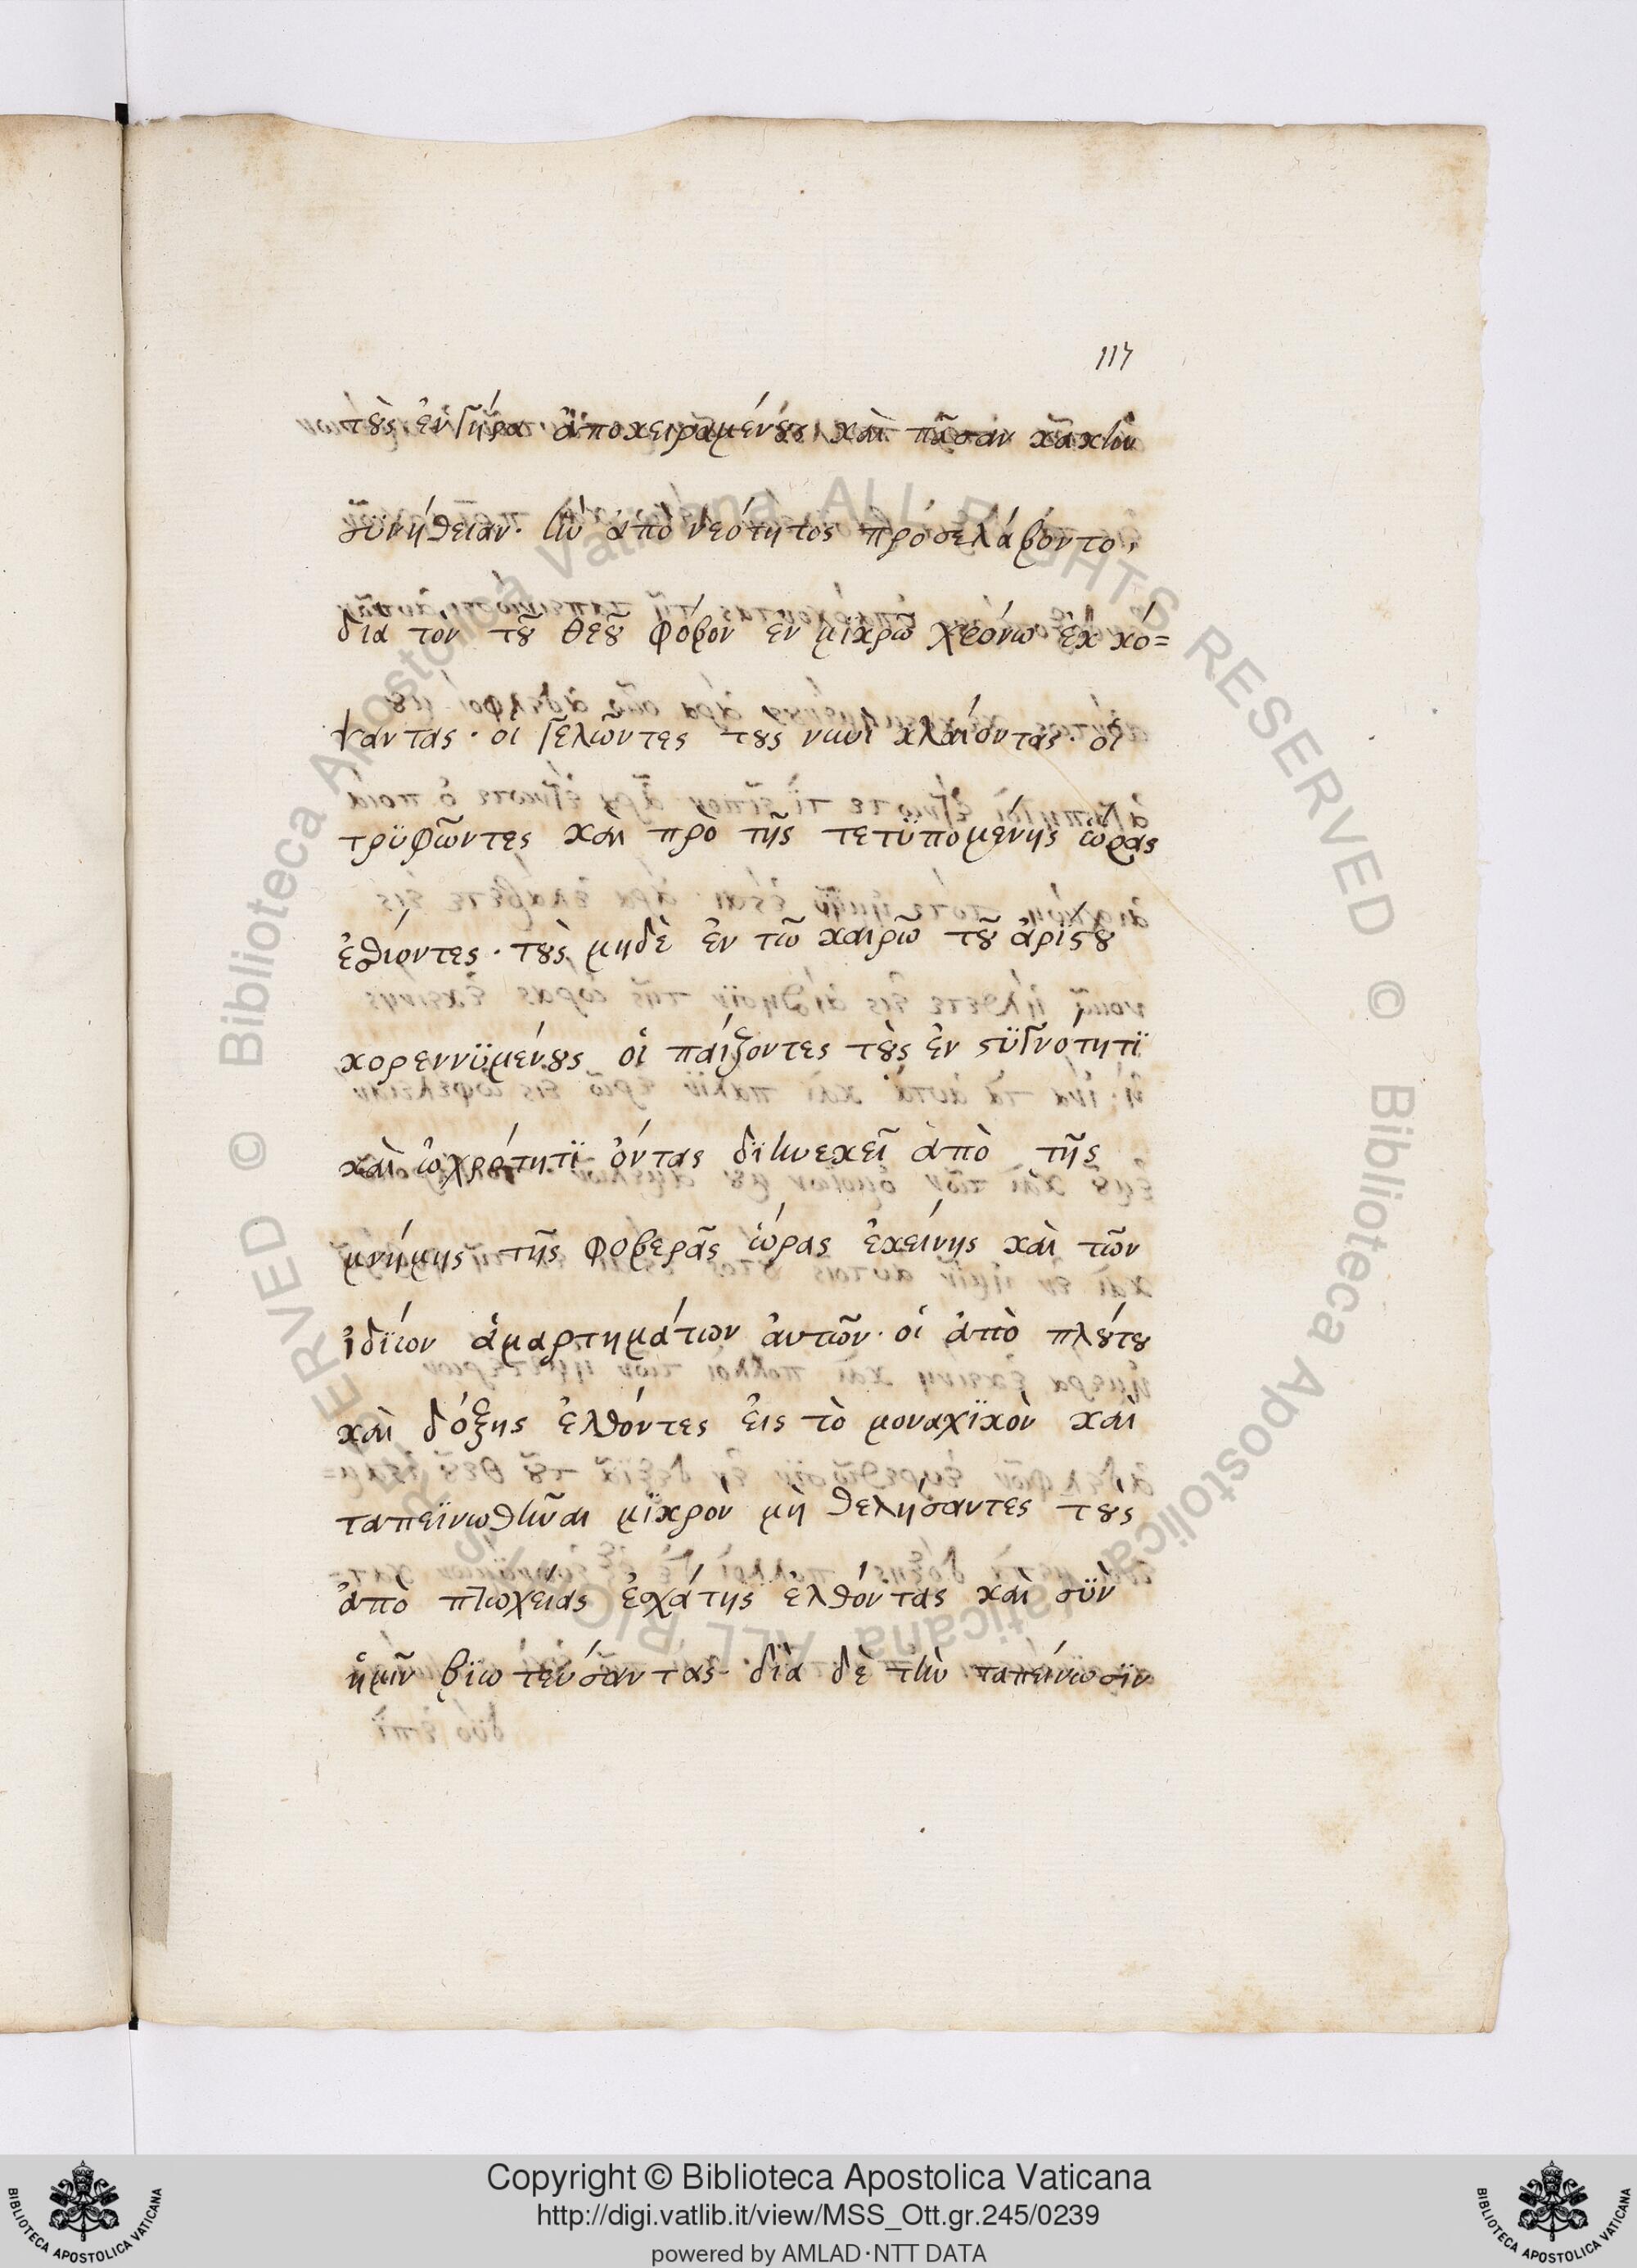 117
τοὺς ἐν γήρα ἀποκειραμένους καὶ πᾶσαν κακὴν
συνήθειαν· ἣν ἀπὸ νεότητος προσελάβοντο,
δια τὸν τοῦ θεοῦ φόβον ἐν μικρῶ χρόνω ἐκ κό=
ψαντας· οἱ γελῶντες τοὺς νυνὶ κλαίοντας· οἱ
τρϋφῶντες καὶ πρὸ τῆς τετϋπομένης ὥρας
ἐσθίοντες· τοὺς μηδὲ ἐν τῶ καιρῶ τοῦ ἀρίστου
κορεννϋμένους οἱ παίζοντες τοὺς ἐν στϋγνότητϊ
καὶ ὠχρότητϊ ὄντας δϊηνεκεῖ ἀπὸ τῆς
μνήμης τῆς φοβερᾶς ὥρας ἐκείνης καὶ τῶν
ἰδΐων ἁμαρτημάτων ἀυτῶν· οἱ ἀπὸ πλούτου
καὶ δόξης ἐλθόντες ἐις τὸ μοναχϊκὸν καὶ
ταπεϊνωθῆναι μϊκρὸν μὴ θελήσαντες τοὺς
ἀπὸ πτωχείας ἐσχάτης ἐλθόντας καὶ σϋν
ἡμῖν βϊωτεύσαντας· δϊὰ δὲ τὴν ταπείνωσϊν
Biblioteca Apostolica Vaticana ALL RIGHTS RESERVED © Biblioteca Apostolica Vaticana ALL RIGHTS RESERVED ©
Copyright © Biblioteca Apostolica Vaticana
http://digi.vatlib.it/view/MSS_Ott.gr.245/0239
powered by AMLAD·NTT DATA
BIBLIOTECA APOSTOLICA VATICANA
BIBLIOTECA APOSTOLICA VATICANA